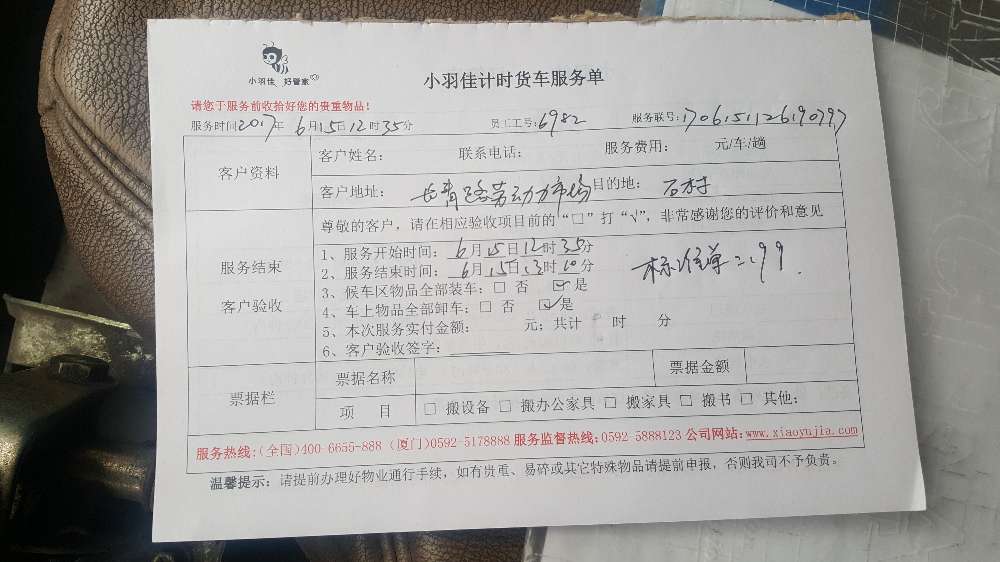 小羽佳 好管家
小羽佳计时货车服务单
请您于服务前收拾好您的贵重物品!
服务时间2017年 6月15日12时35分 员工工号:6982 服务联号:
客户资料
客户姓名: 联系电话: 服务费用: 元/车/趟
客户地址: 长青路劳动力市场 目的地: 石村
服务结束
客户验收
尊敬的客户,请在相应验收项目前的“□”打“√”,非常感谢您的评价和意见
1、服务开始时间: 6月15日12时35分
2、服务结束时间: 6月15日13时10分
标准单
3、候车区物品全部装车:□ 否 ☑ 是
4、车上物品全部卸车:□ 否 ☑ 是
5、本次服务实付金额: 元;共计 时 分
6、客户验收签字:
票据栏
票据名称 票据金额
项 目 □ 搬设备 □ 搬办公家具 □ 搬家具 □ 搬书 □ 其他:
服务热线:(全国)400-6655-888 (厦门)0592-5178888 服务监督热线:0592-5888123 公司网站:www.xiaoyujia.com
温馨提示:请提前办理好物业通行手续,如有贵重、易碎或其它特殊物品请提前申报,否则我司不予负责。